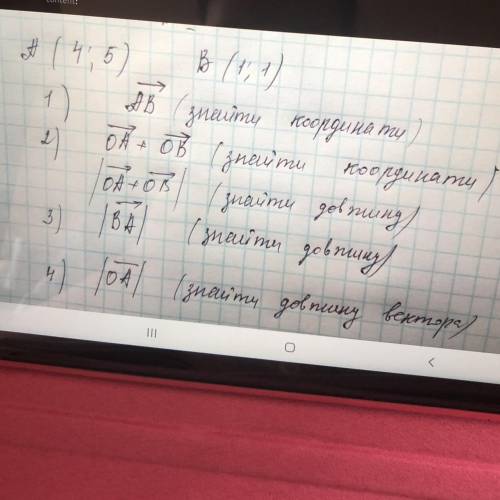 content:
A ( 4 ; 5 ) B ( 1 ; 1 )
1) AB (знайти координати)
2) OA + OB (знайти координати)
|OA + OB| (знайти довжину)
3) |BA| (знайти довжину)
4) |OA| (знайти довжину вектора)